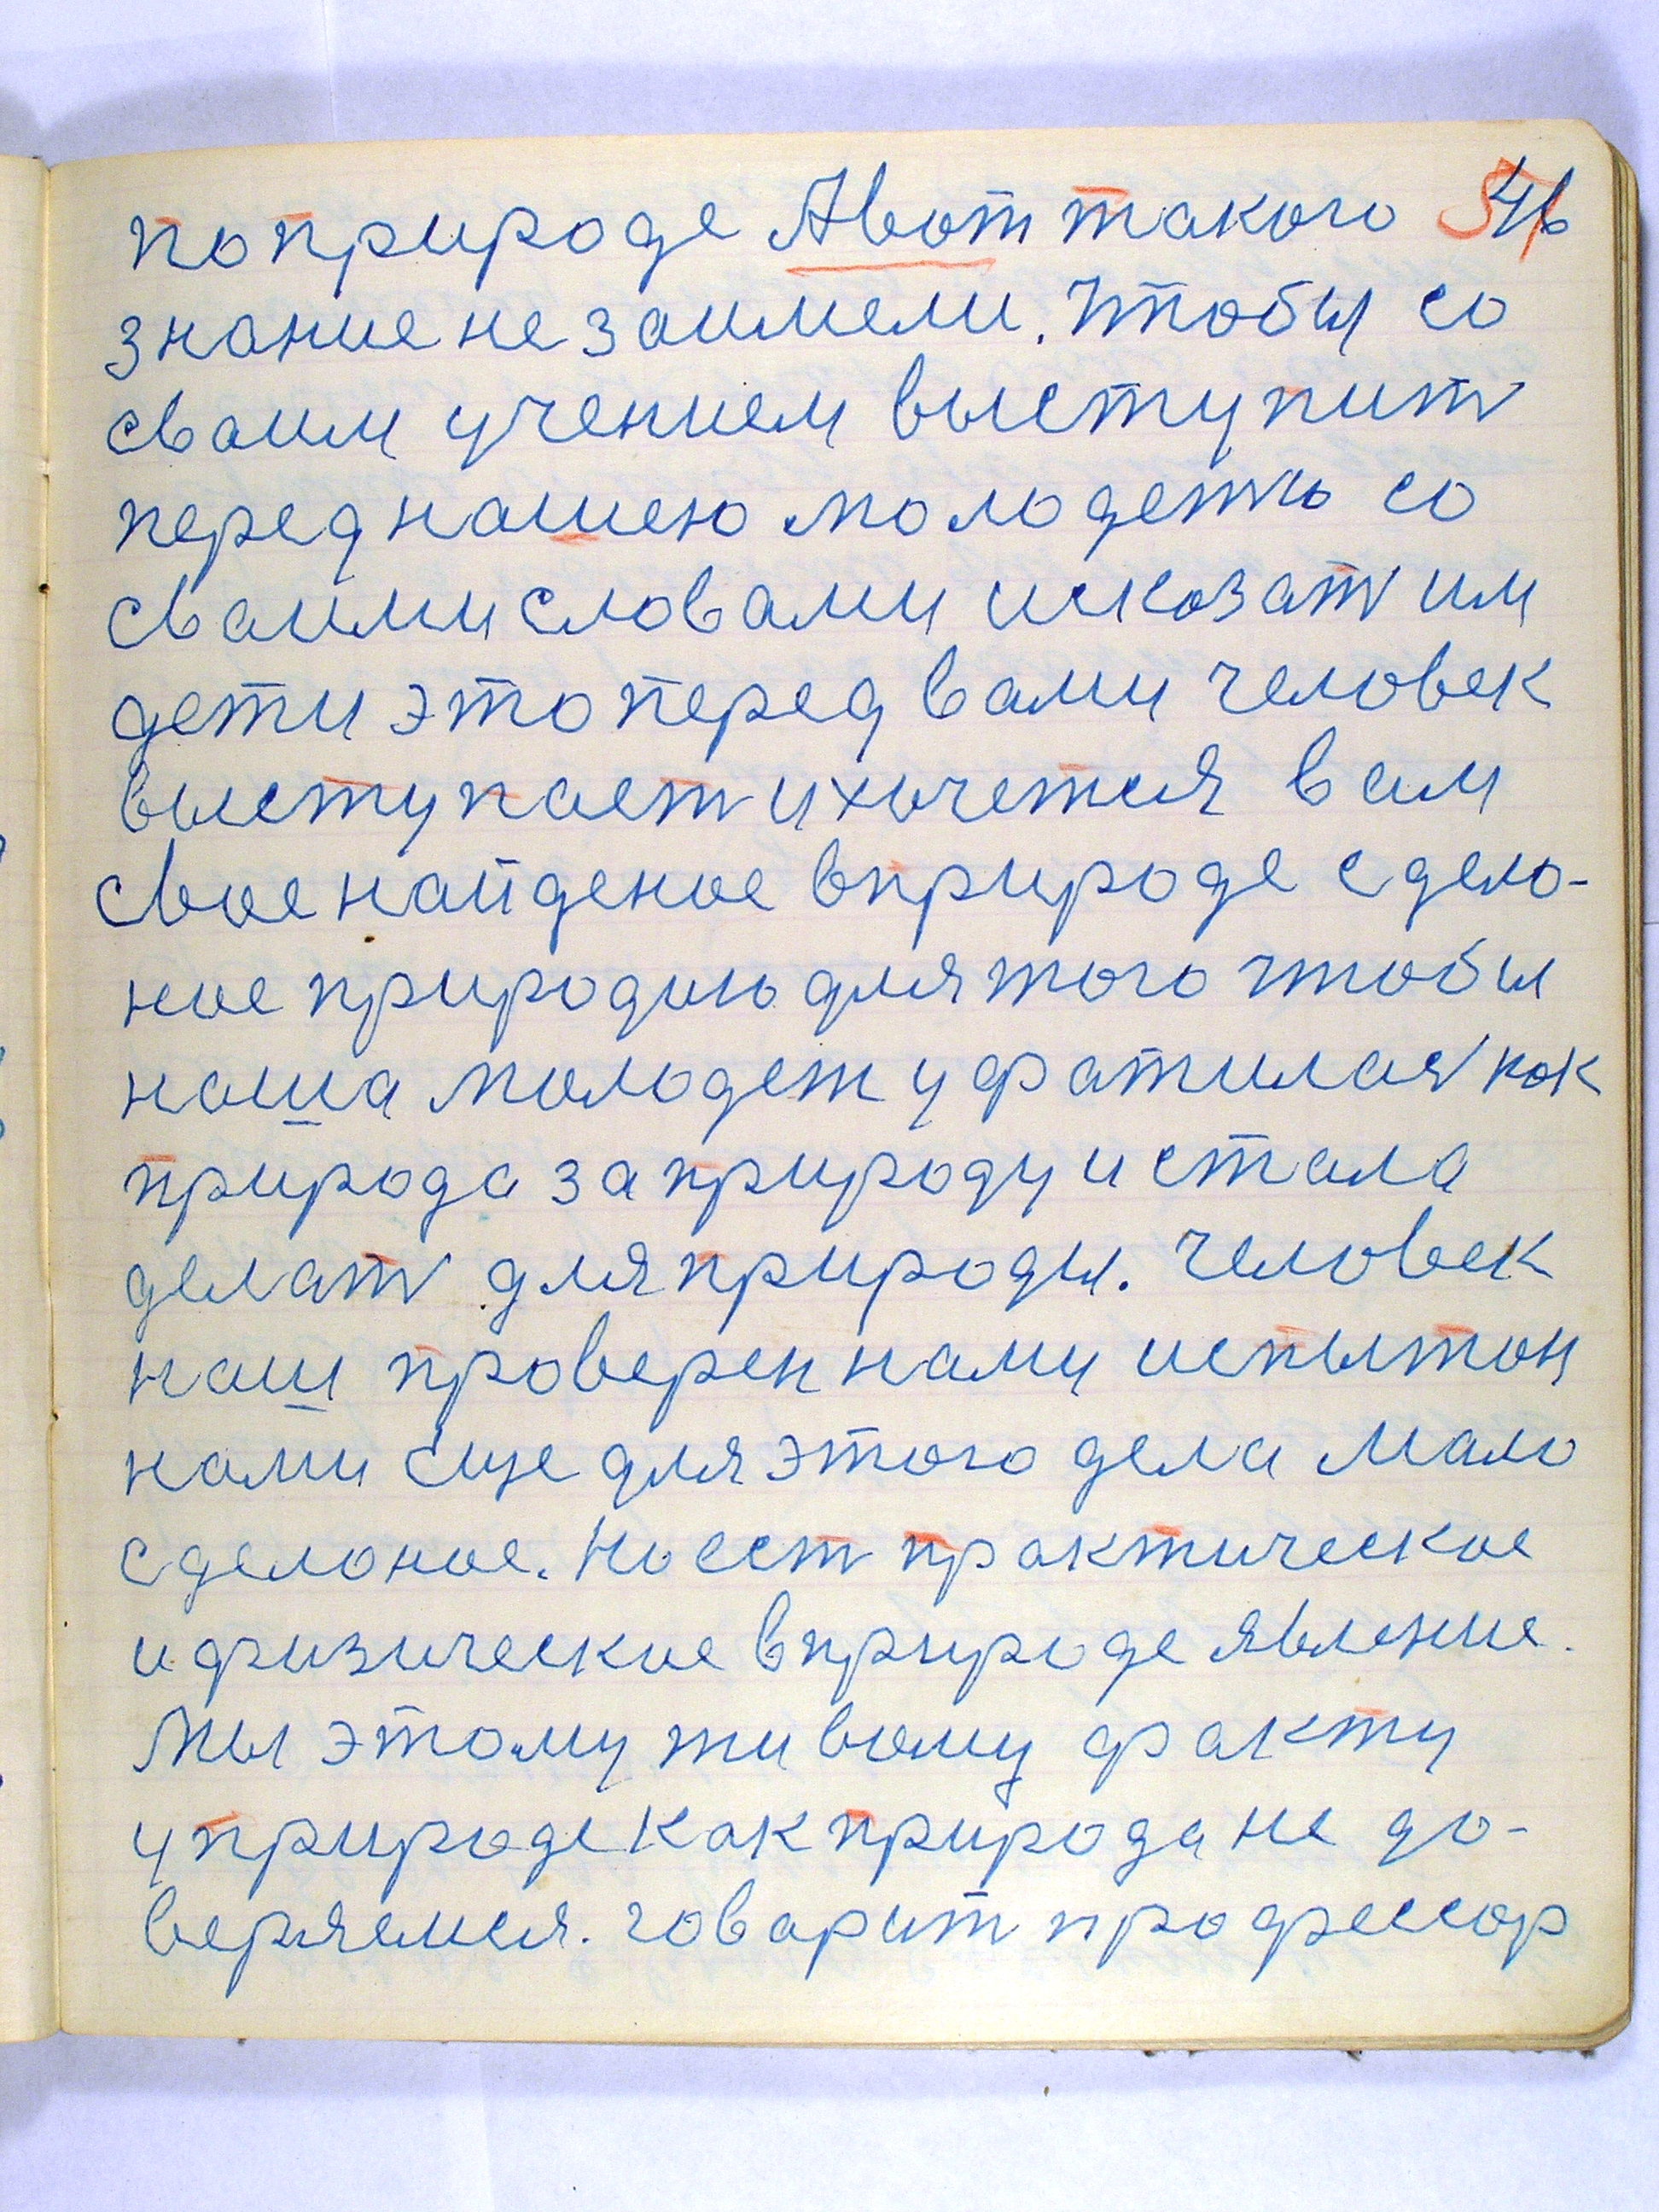 поприроде Авот такого
знание не заимели. Чтобы со
сваим учением выступит
перед нашею молодетю со
сваими словами исказат им
дети это перед вами человек
выступает ихочется вам
свое найденое вприроде сдело-
ное природою длятого чтобы
наша молодет уфатилас как
природа заприроду истала
делат дляприроды. Человек
наш проверен нами испытон
нами еще для этого дела мало
сделоное. Но ест практическое
ифизическое вприроде явление.
Мы этому тивому факту
уприроде как природа не до-
веряемся. говарит професcор